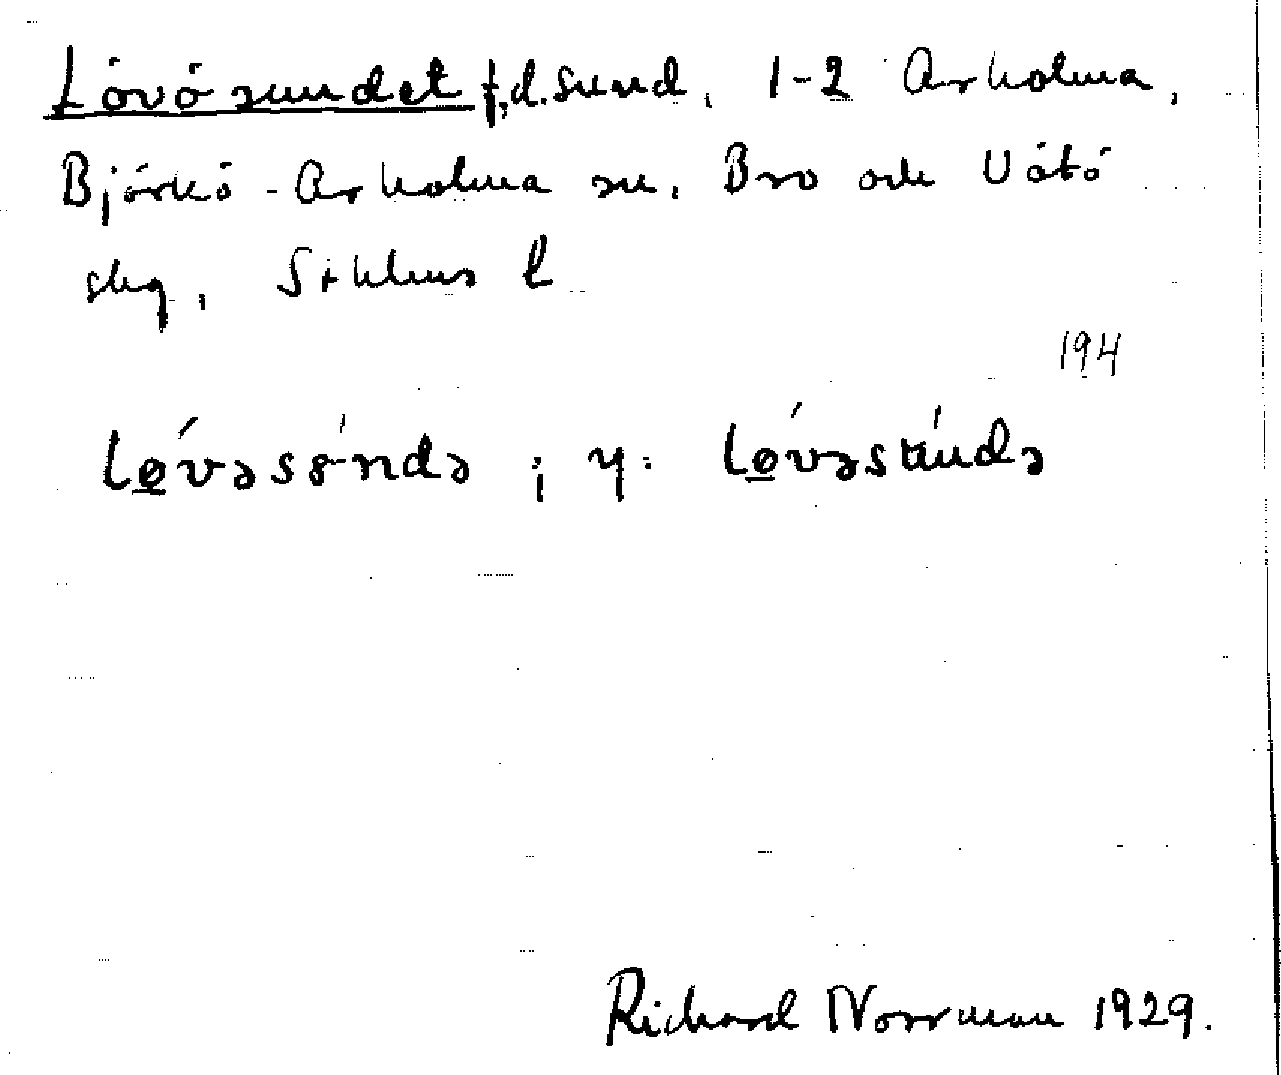 Lövösundet f.d. sund, 1-2 Arholma,
Björkö-Arholma sn. Bro och Vätö
skg, Sthlms l
194
Lǿ̲vəsś̀ndə ; y. Lǿ̲vəsúndə
Richard Norrman 1929.